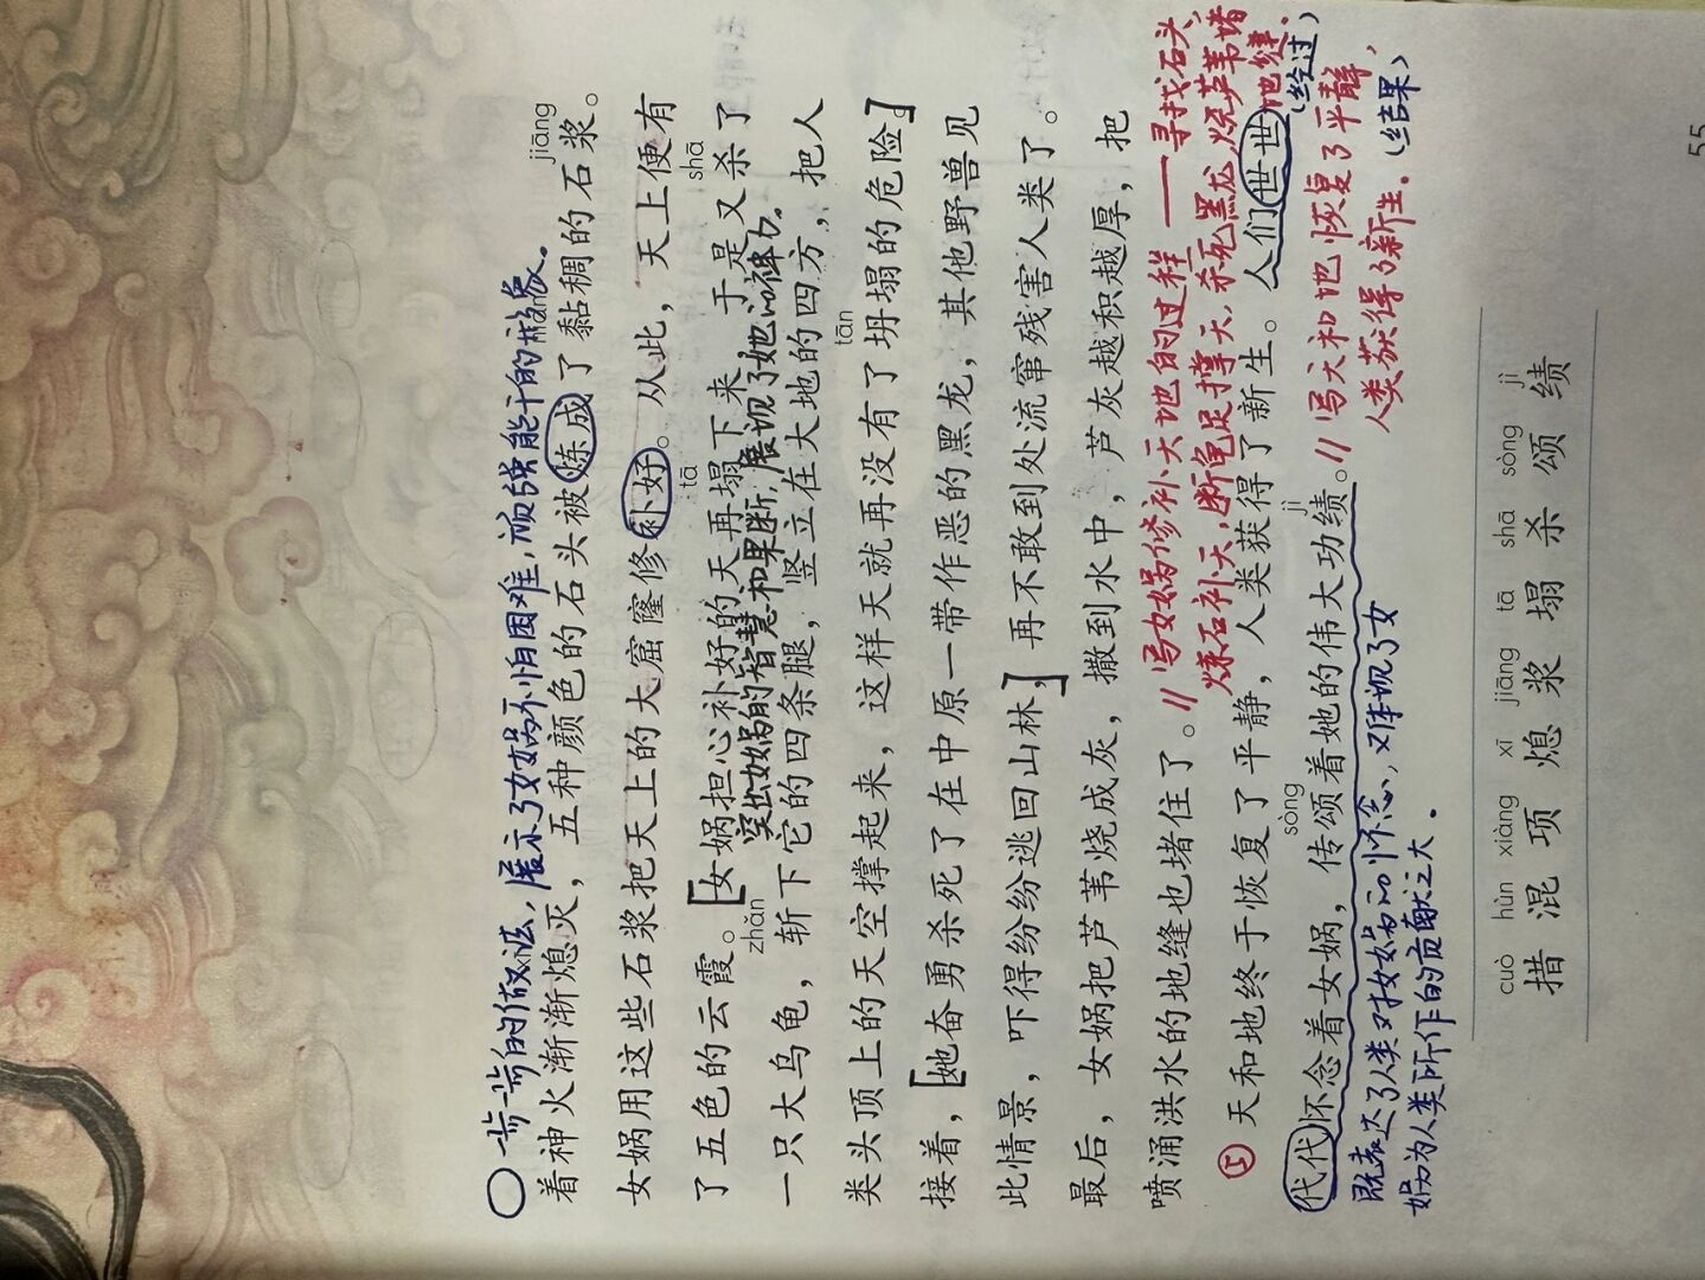 一步一步的做法，展示了女娲不怕困难，顽强能干的形象。
jiāng
着神火渐渐熄灭，五种颜色的石头被炼成了黏稠的石浆。
女娲用这些石浆把天上的大窟窿修补好。从此，天上便有
tā shā
了五色的云霞。[女娲担心补好的天再塌下来，于是又杀了
突出女娲的智慧和果断，展现了她的神力。
zhǎn
一只大乌龟，斩下它的四条腿，竖立在大地的四方，把人
tān
类头顶上的天空撑起来，这样天就再没有了坍塌的危险。]
接着，[她奋勇杀死了在中原一带作恶的黑龙，其他野兽见
此情景，吓得纷纷逃回山林，]再不敢到处流窜残害人类了。
最后，女娲把芦苇烧成灰，撒到水中，芦灰越积越厚，把
喷涌洪水的地缝也堵住了。//
写女娲修补天地的过程——寻找石头，
炼石补天，断龟足撑天，杀死黑龙，烧芦苇堵
地缝。
（经过）
⑤ 天和地终于恢复了平静，人类获得了新生。人们世世
sòng jì
代代怀念着女娲，传颂着她的伟大功绩。//
写天和地恢复了平静，
人类获得了新生。（结果）
既表达了人类对女娲的怀念，又体现了女
娲为人类所作的贡献之大。
cuò hùn xiàng xī jiāng tā shā sòng jì
措 混 项 熄 浆 塌 杀 颂 绩
55